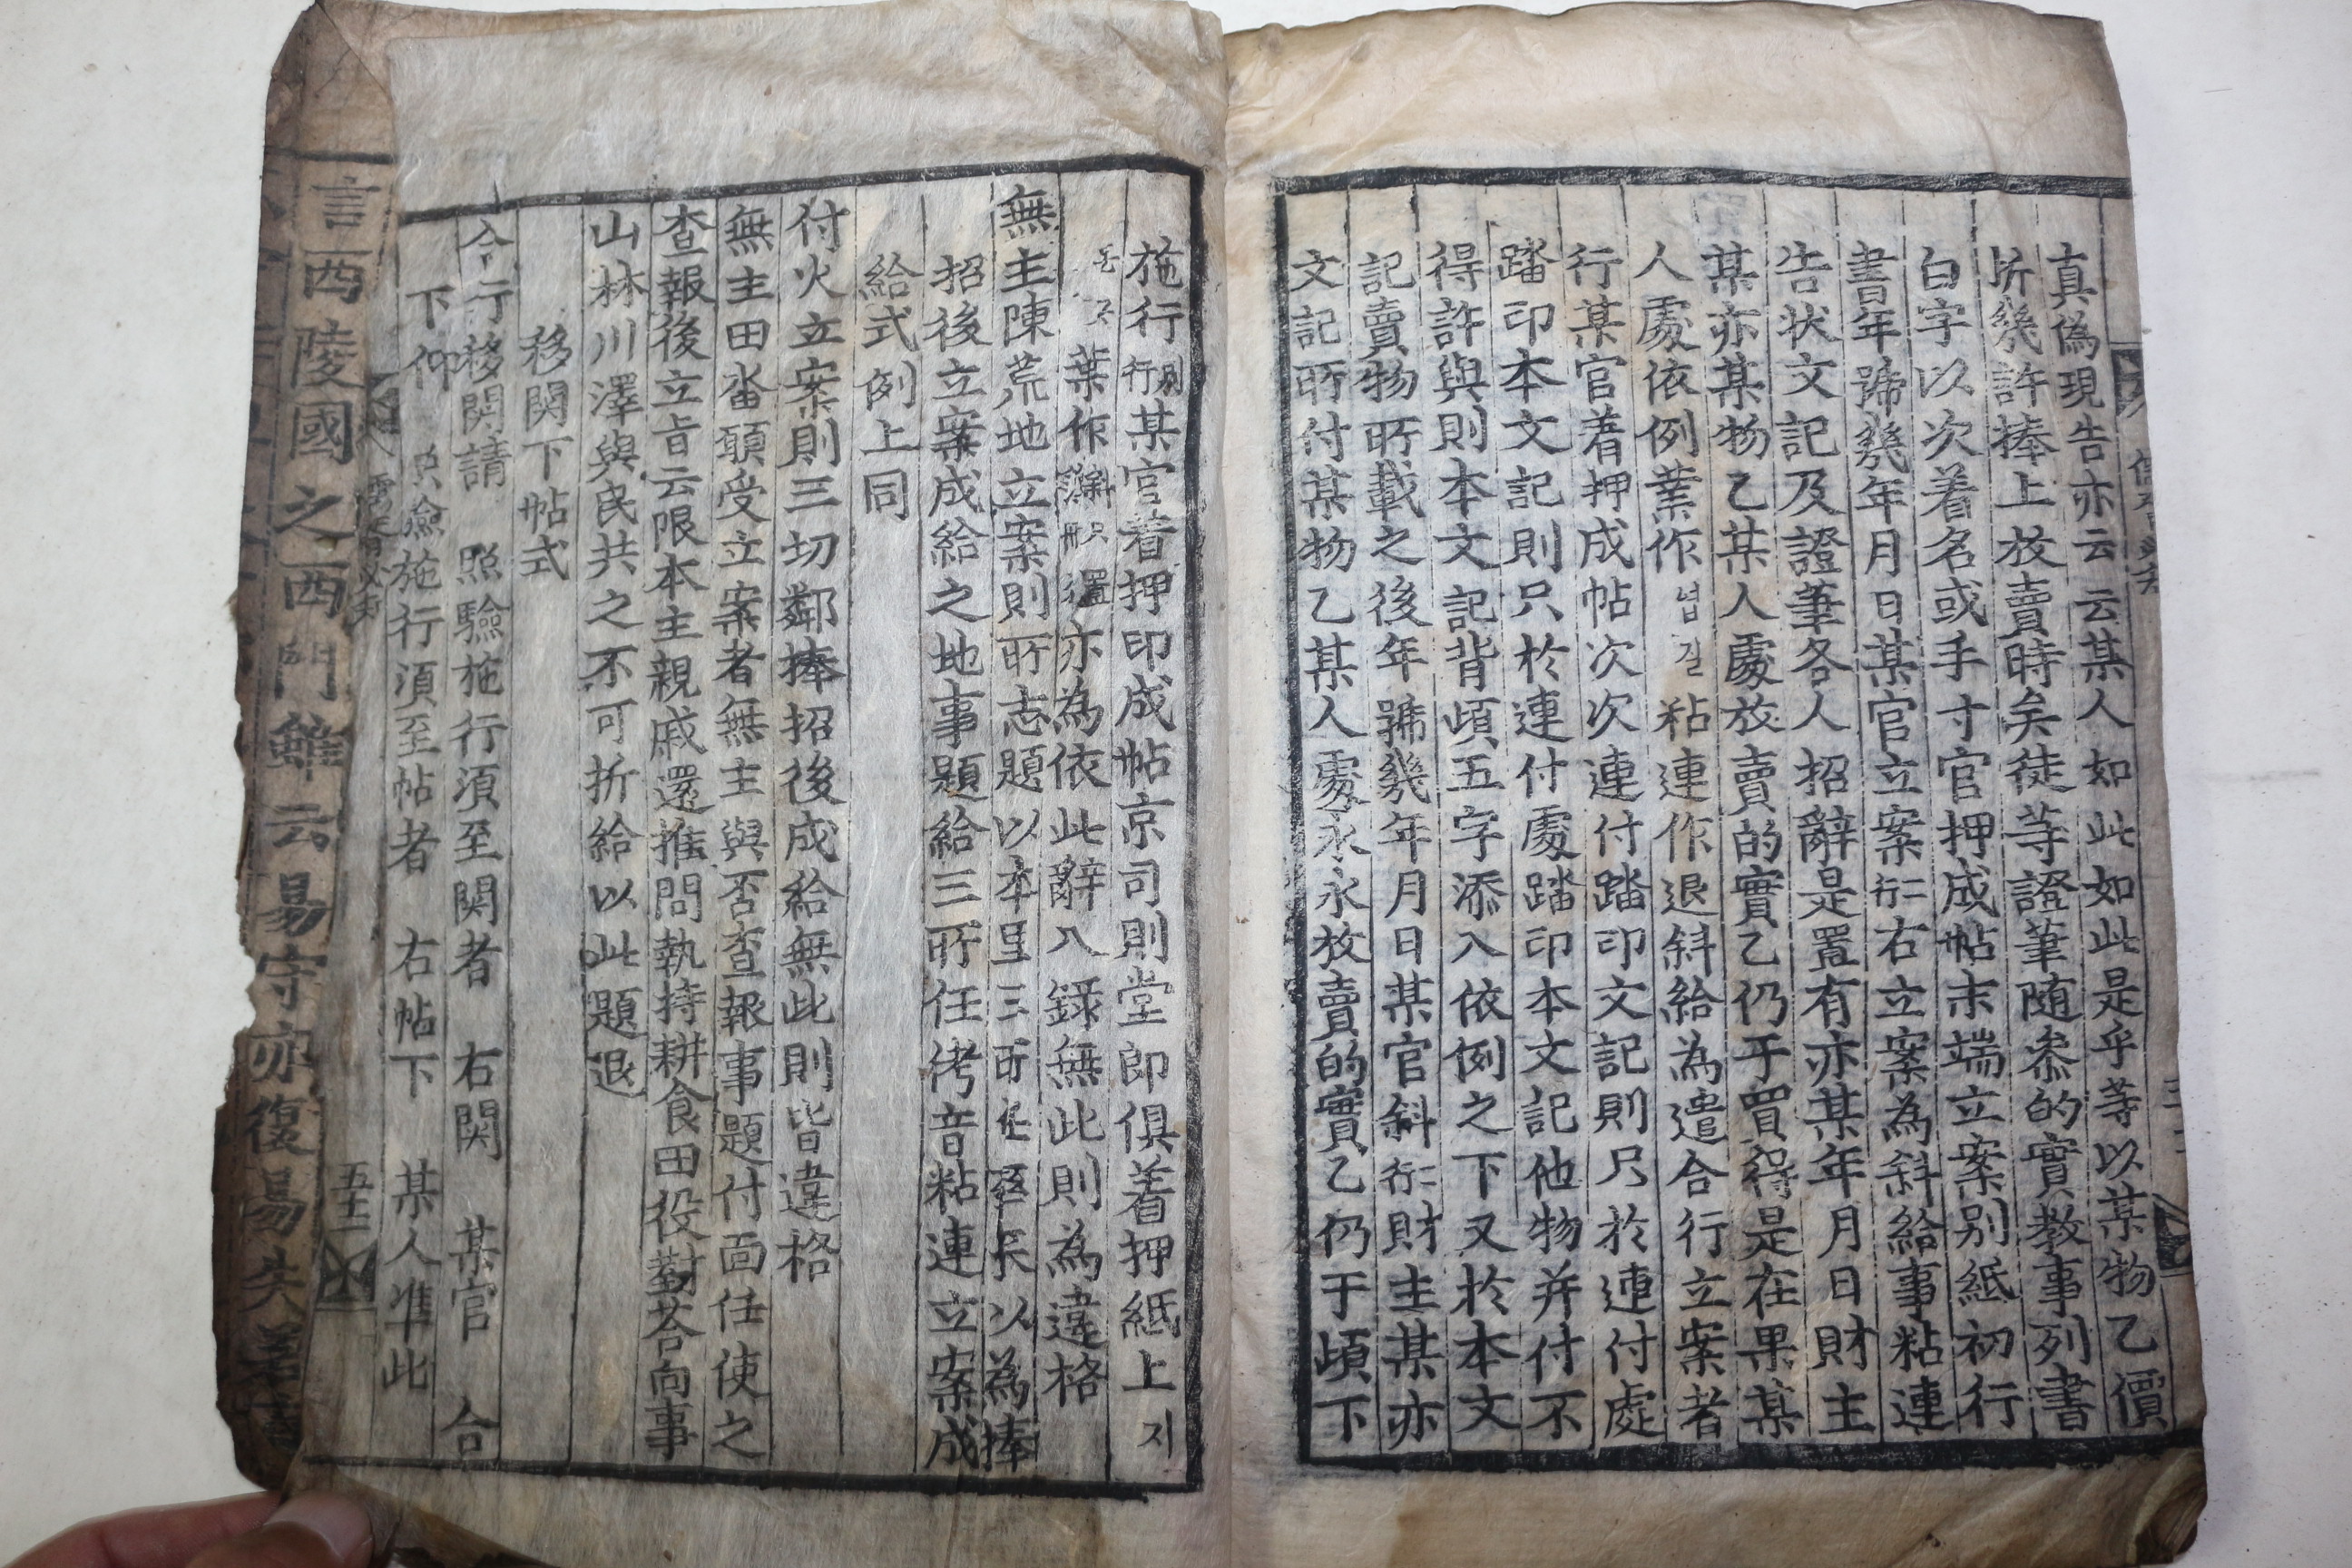 真偽現告亦云云某人如此如此是乎等以某物乙價
折幾許捧上放賣時矣徒等證筆随叅的實敎事列書
白字以次着名或手寸官押成帖末端立案別紙初行
書年號幾年月日某官立案行二右立案為斜給事粘連
告状文記及證筆各人招辭是置有亦某年月日財主
某亦某物乙某人處放賣的實乙仍于買得是在果某
人處依例葉作넙길粘連作退斜給為遣合行立案者
行某官着押成帖次次連付踏印文記則只於連付處
踏印本文記則只於連付處踏印本文記他物并付不
得許與則本文記背頉五字添入依例之下又於本文
記賣物所載之後年號幾年月日某官斜行二財主某亦
文記所付某物乙某人處永永放賣的實乙仍于頉下
施行行別某官着押印成帖京司則堂郎俱着押紙上지
葉作置亦為依此辭入録無此則為違格
無主陳荒地立案則所志題以本里三所任以為捧
招後立案成給之地事題給三所任侤音粘連立案成
給式例上同
付火立案則三切鄰捧招後成給無此則皆違格
無主田畓願受立案者無主與否查報事題付面任使之
查報後立旨云限本主親戚還推問執持耕食田役對答向事
山林川澤與民共之不可折給以此題退
移関下帖式
合行移関請 照驗施行須至関者 右関 某官 合
下仰 照驗施行須至帖者 右帖下 某人准此
五十二
言西陵國之西門雖云易守亦復易失